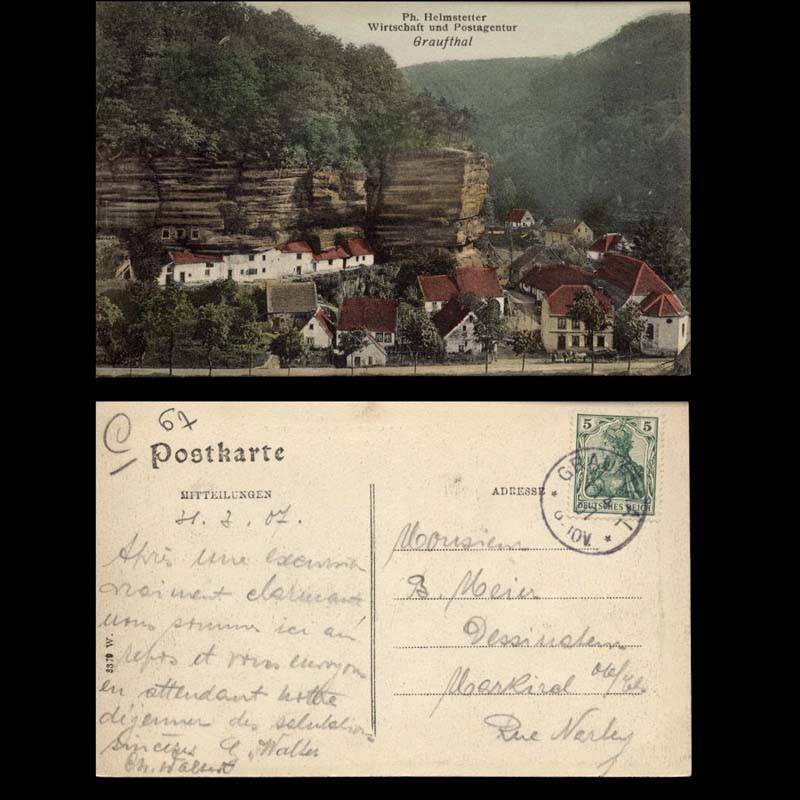 Ph. Helmstetter
Wirtschaft und Postagentur
Graufthal
67
Postkarte
MITTEILUNGEN
ADRESSE
5 5
DEUTSCHES REICH
GRAUFTHAL
8-10V.
31. 3. 07.
Après une excursion
vraiment charmante
nous sommes ici au
repos et vous envoyons
en attendant notre
déjeuner des salutations
sincères E. Walter
Ch. Walter
3379 W.
Monsieur
B. Meier
Dessinateur
Markirch
Rue